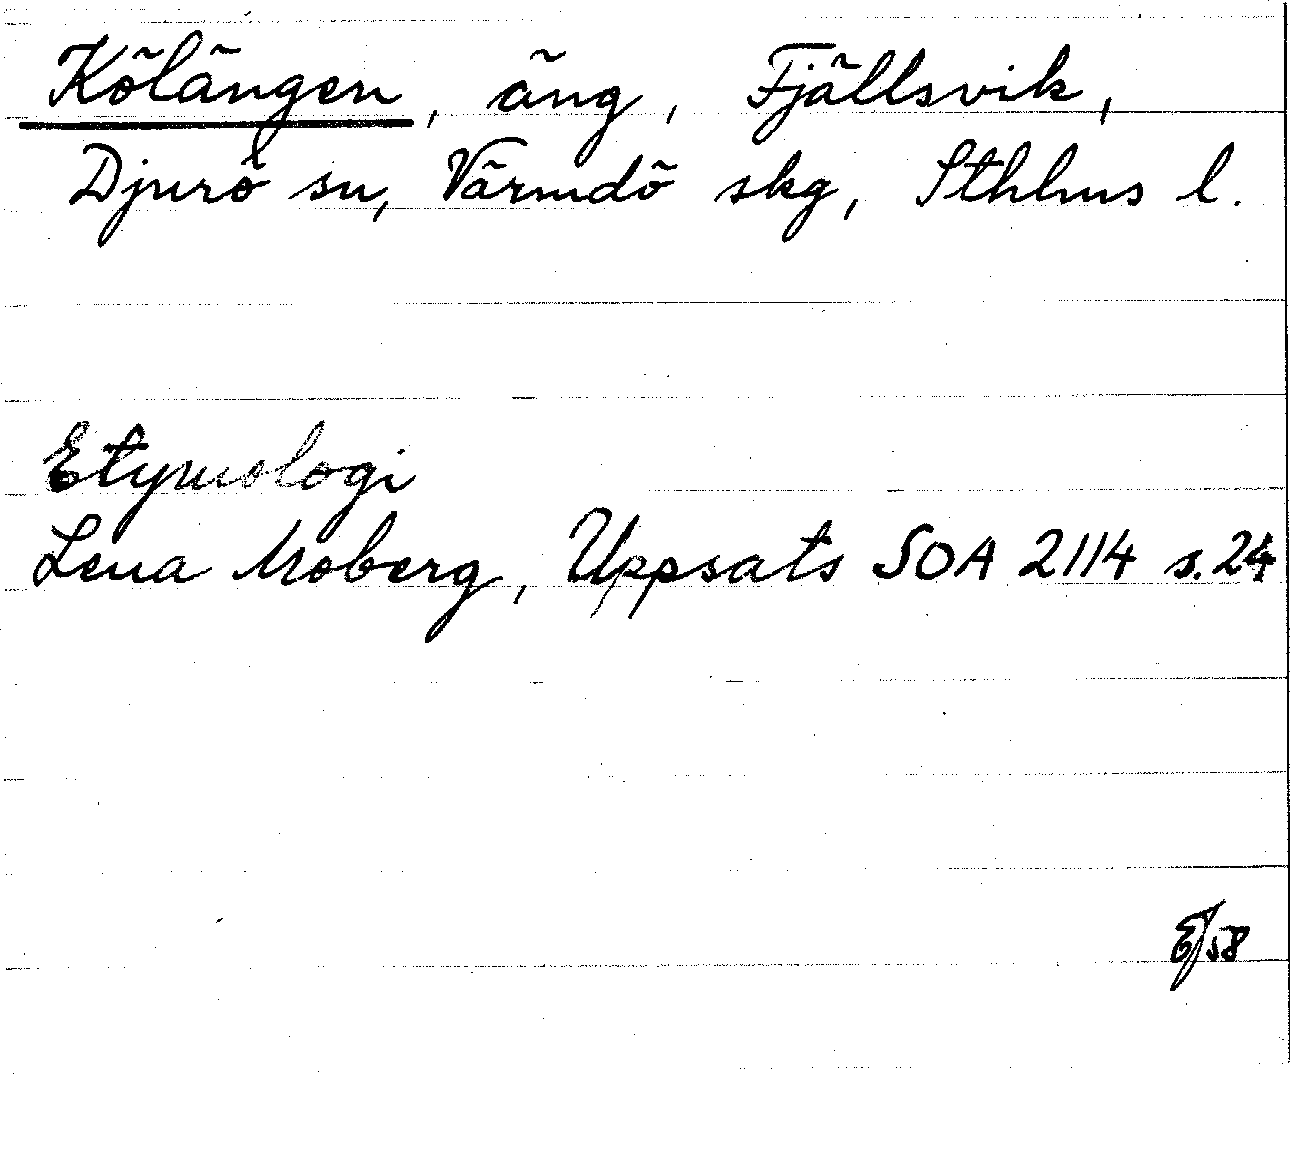 Kölängen, äng, Fjällsvik,
Djurö sn, Värmdö skg, Sthlms l.
Etymologi
Lena Moberg, Uppsats SOA 2114 s. 24
E/58